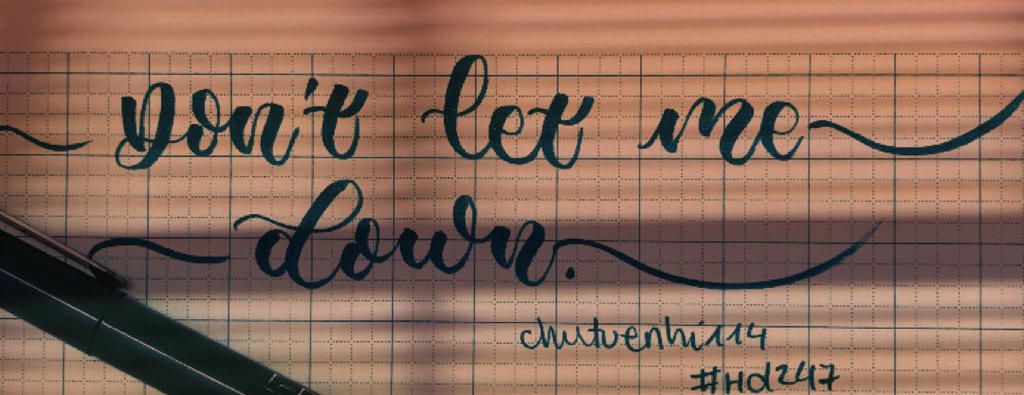 Don't let me
down.
chutuenhi114
#Hd247